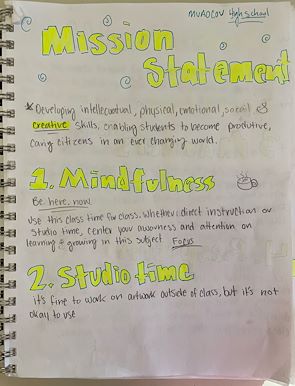 High School
Mission
Statement
* Developing intellectual, physical, emotional, social &
creative skills, enabling students to become productive,
caring citizens in an ever changing world.
1. Mindfulness
Be here, now
Use this class time for class. Whether: direct instruction or
Studio time, center your awareness and attention on
learning & growing in this subject Focus
2. Studio time
it's fine to work on artwork outside of class, but it's not
okay to use